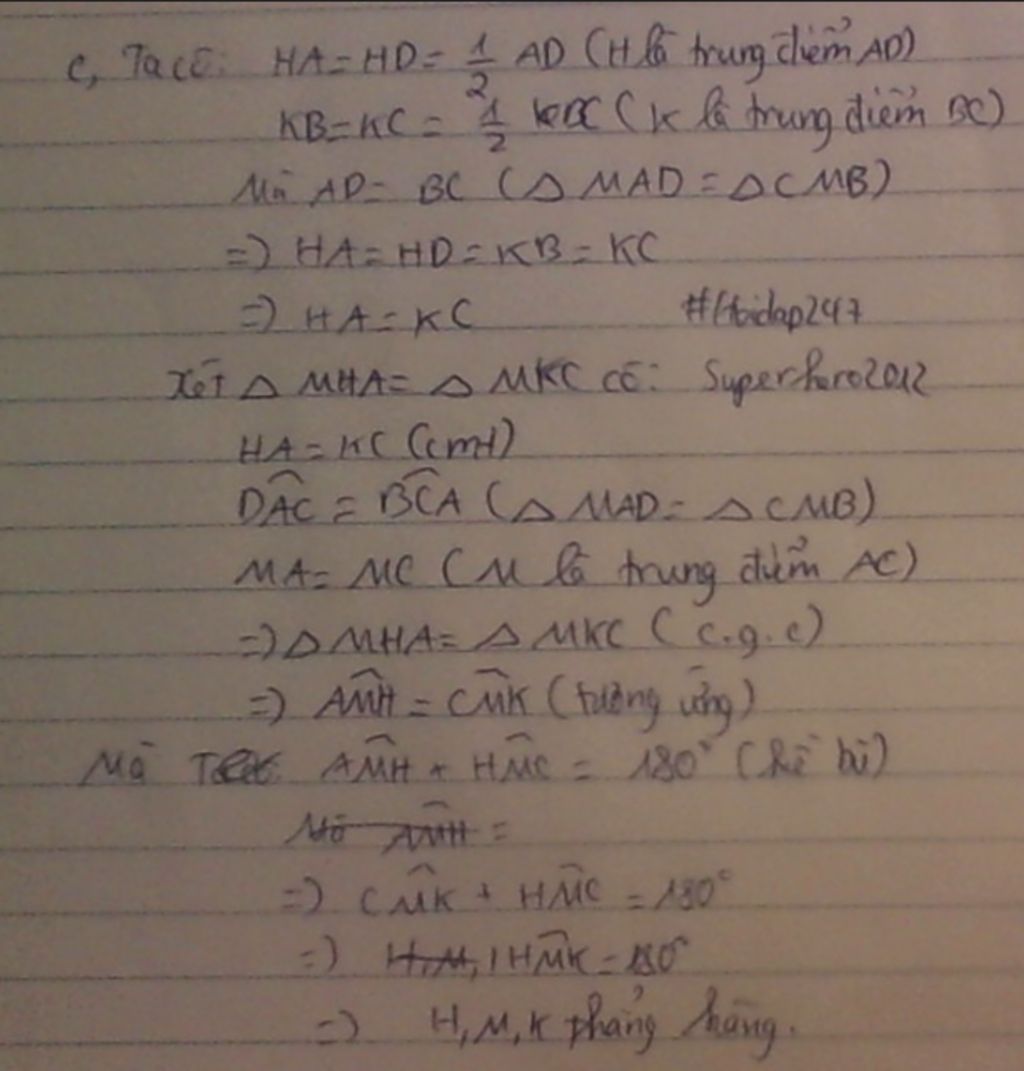 c, Ta có: HA = HD = 1/2 AD (H là trung điểm AD)
KB = KC = 1/2 BC (K là trung điểm BC)
Mà AD = BC (△ MAD = △ CMB)
=> HA = HD = KB = KC
=> HA = KC #Hoidap247
Xét △ MHA = △ MKC có: Superhero2012
HA = KC (cmt)
DAC = BCA (△ MAD = △ CMB)
MA = MC (M là trung điểm AC)
=> △ MHA = △ MKC (c.g.c)
=> AMH = CMK (tương ứng)
Mà AMH + HMC = 180° (kề bù)
Mà AMH =
=> CMK + HMC = 180°
=> H, M, HMK = 180°
=> H, M, K thẳng hàng.